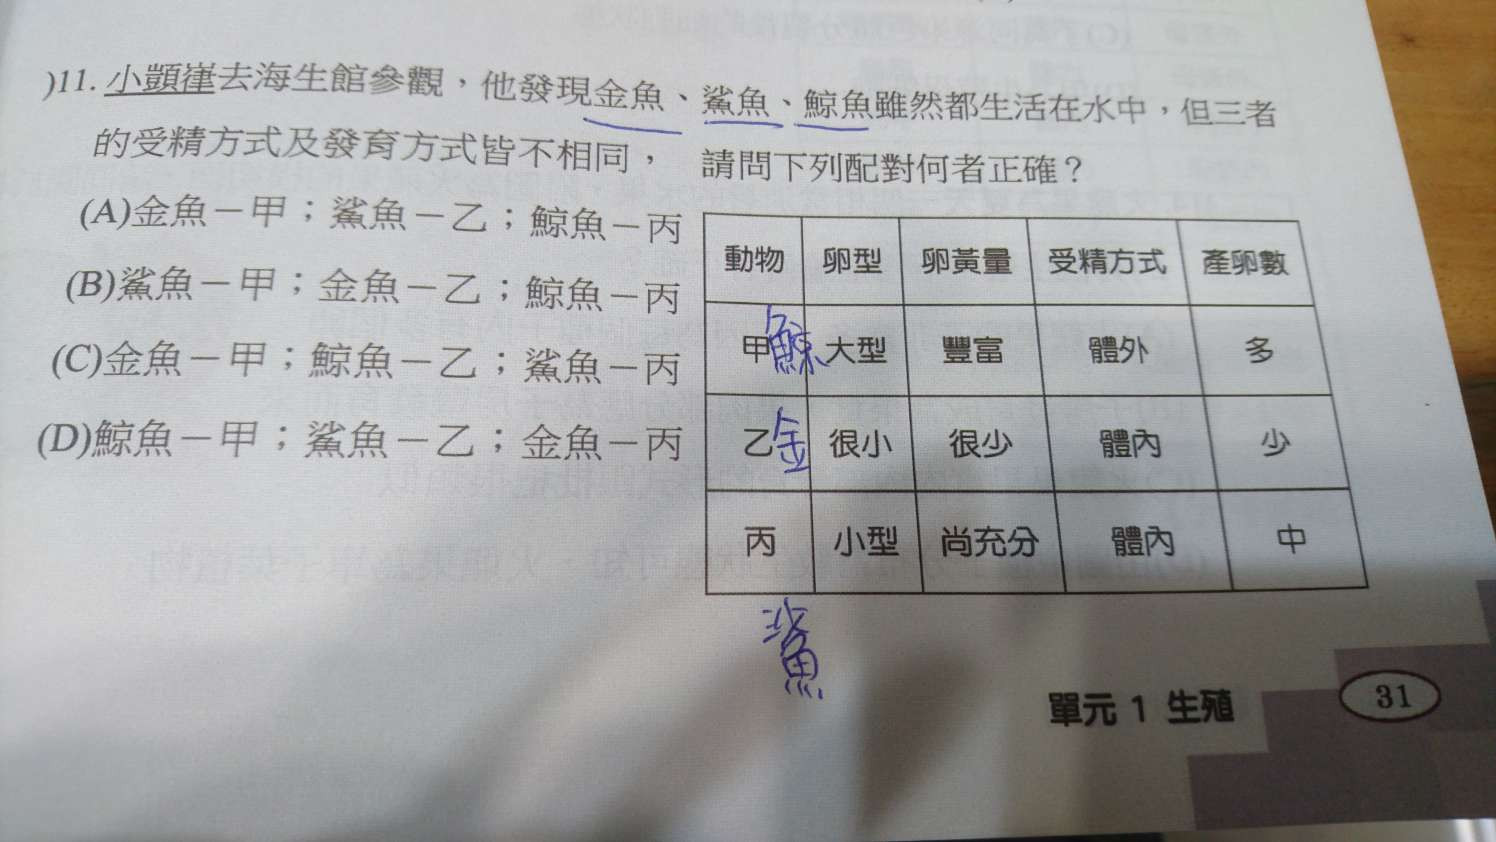 )11. 小顗嵂去海生館參觀，他發現金魚、鯊魚、鯨魚雖然都生活在水中，但三者
的受精方式及發育方式皆不相同， 請問下列配對何者正確？
(A)金魚－甲；鯊魚－乙；鯨魚－丙
(B)鯊魚－甲；金魚－乙；鯨魚－丙
(C)金魚－甲；鯨魚－乙；鯊魚－丙
(D)鯨魚－甲；鯊魚－乙；金魚－丙
動物 卵型 卵黃量 受精方式 產卵數
甲 鯨 大型 豐富 體外 多
乙 金 很小 很少 體內 少
丙 小型 尚充分 體內 中
鯊
單元 1 生殖 31